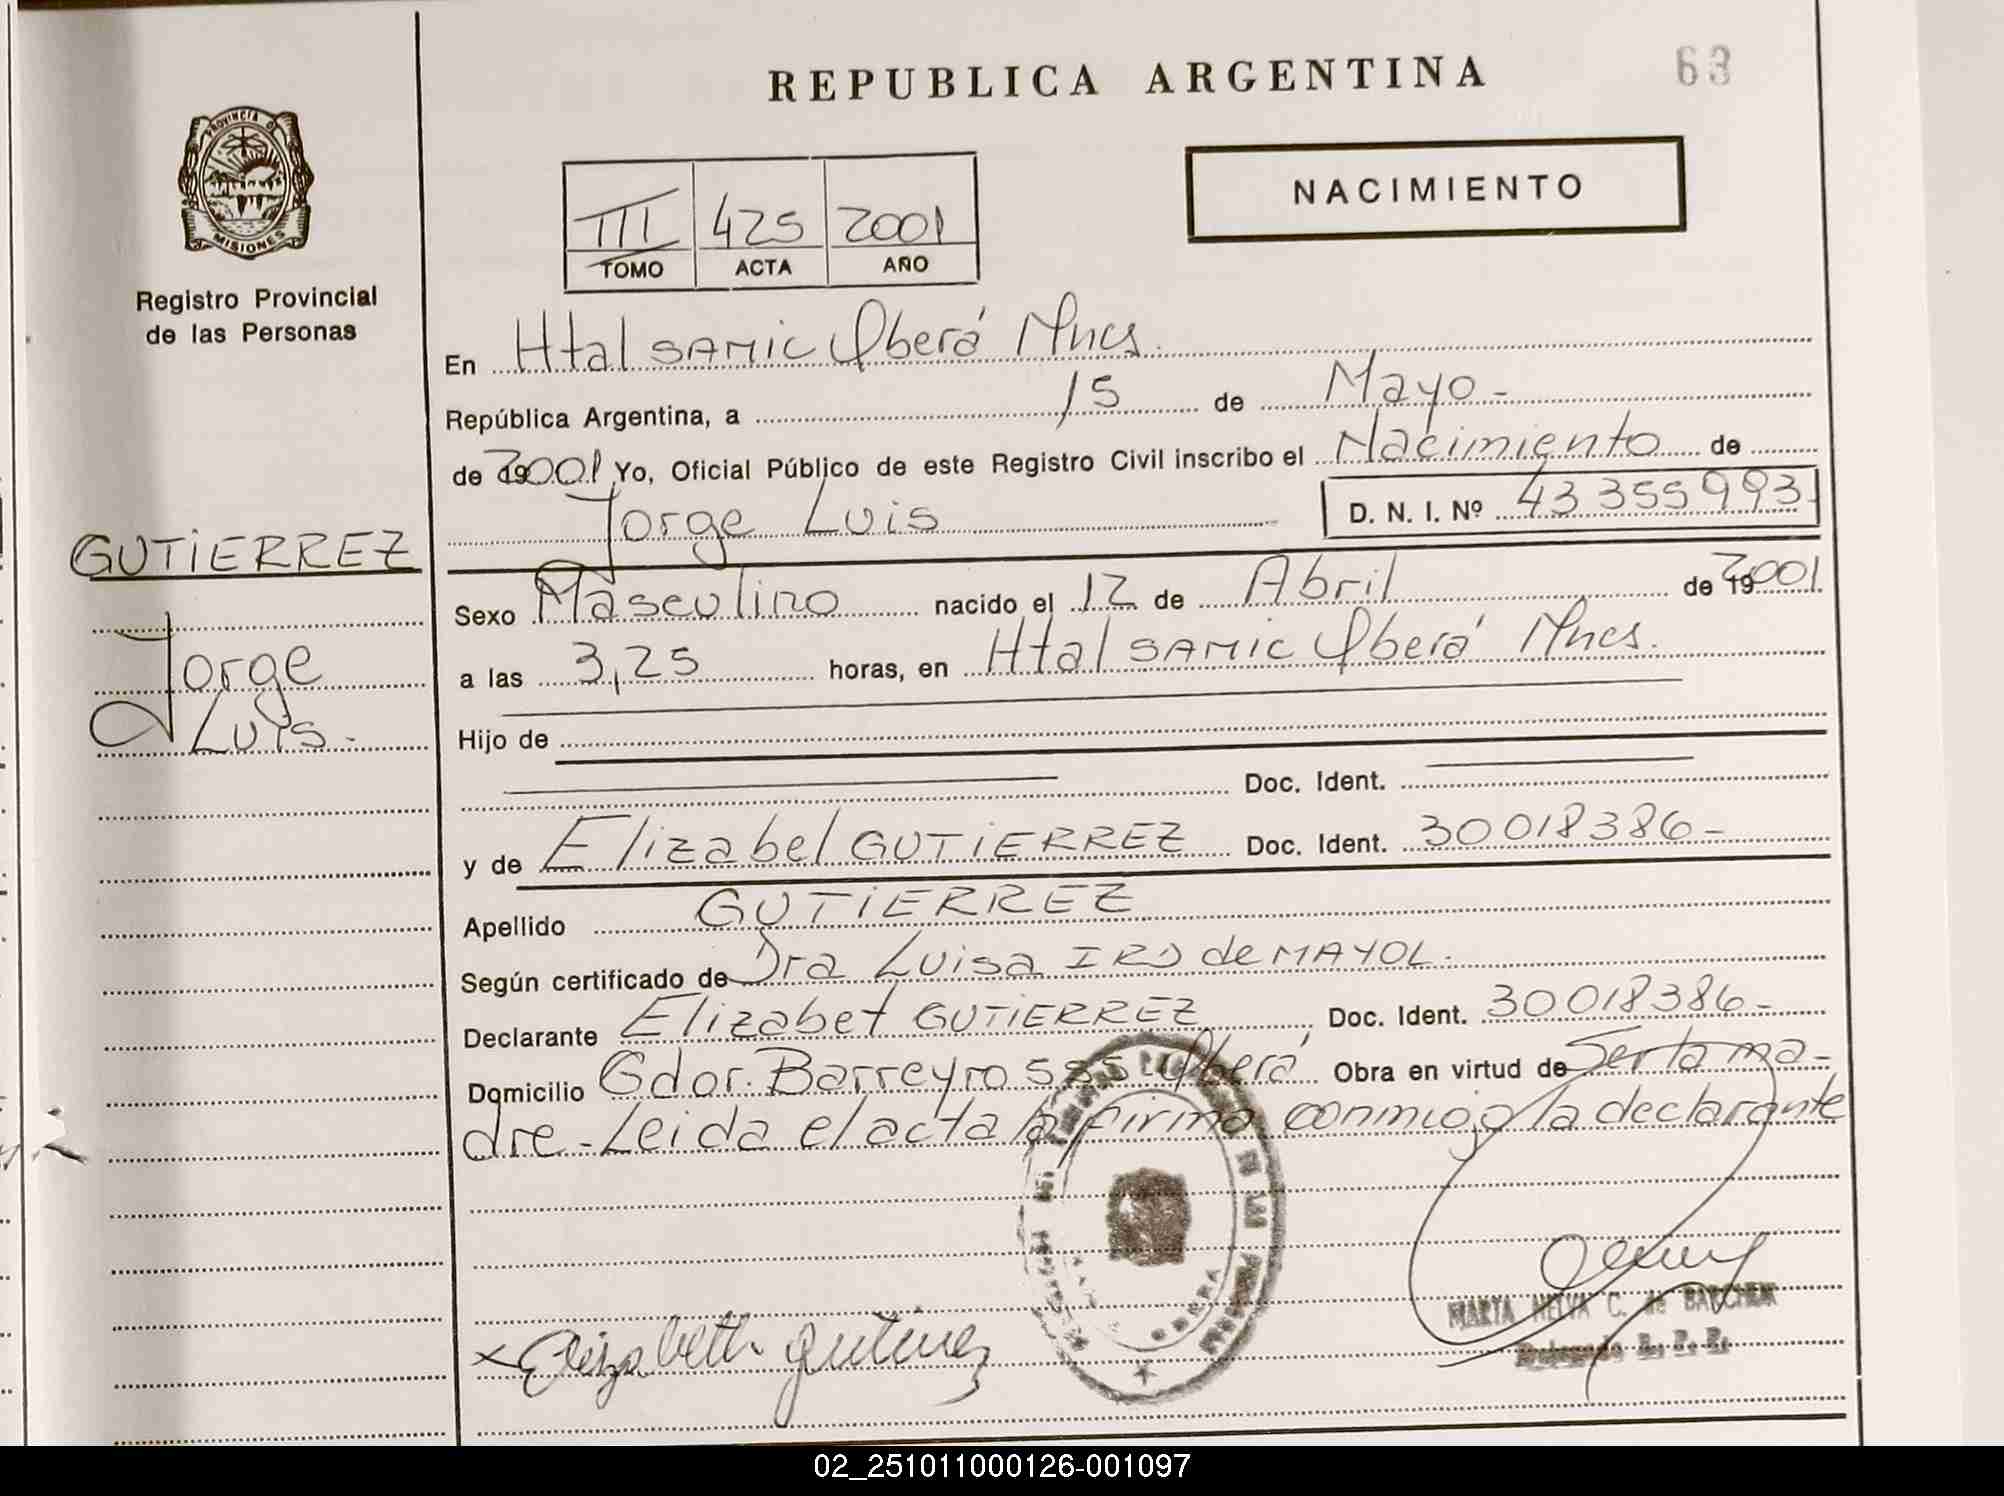 REPUBLICA ARGENTINA
63
PROVINCIA DE
MISIONES
Registro Provincial
de las Personas
NACIMIENTO
III 425 2001
TOMO ACTA AÑO
En Htal SAMIC Oberá Mnes.
República Argentina, a 15 de Mayo -
de 2001 Yo, Oficial Público de este Registro Civil inscribo el Nacimiento de
Jorge Luis D. N. I. Nº 43355993
GUTIERREZ
Jorge
Luis.-
Sexo Masculino nacido el 12 de Abril de 192001
a las 3,25 horas, en Htal SAMIC Oberá Mnes.
Hijo de
Doc. Ident.
y de Elizabel GUTIERREZ Doc. Ident. 30018386-
Apellido GUTIERREZ
Según certificado de Dra Luisa de MAYOL.
Declarante Elizabet GUTIERREZ Doc. Ident. 30018386-
Domicilio Gdor. Barreyro 585 Oberá Obra en virtud de Ser la ma-
dre - Leida el acta la firma conmigo la declarante
DE LAS
OBERA
x Elizabeth gutierrez
MARTA NELVA C. de
02_251011000126-001097